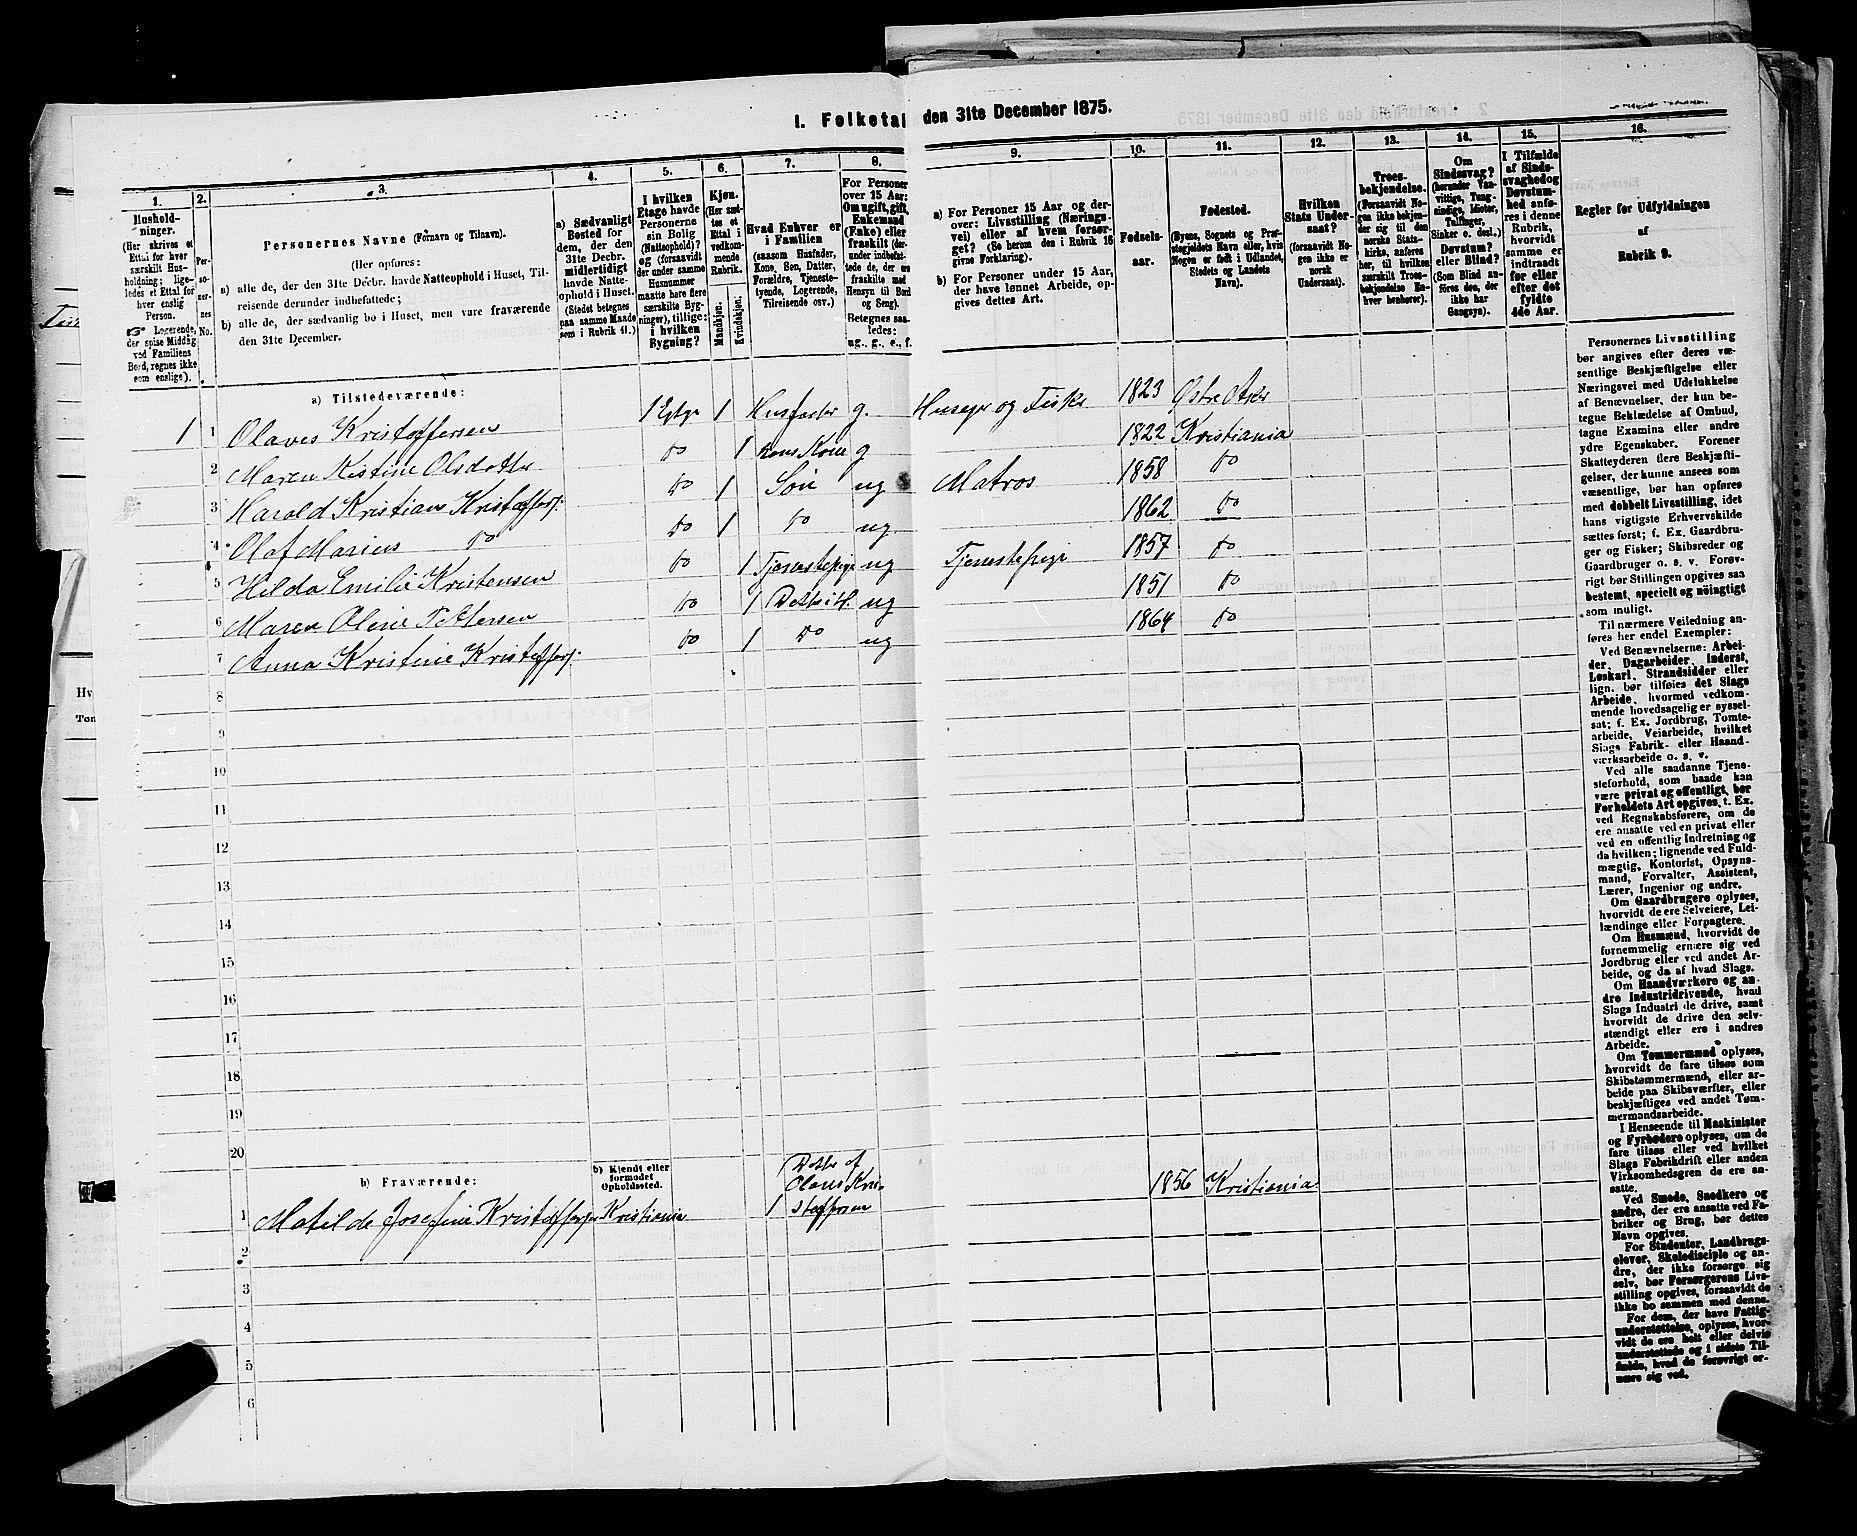 1. Folketal den 31te December 1875.
1.
Hushold-
ninger.
(Her skrives et
Ettal for hver
særskilt Hus-
holdning; lige-
ledes et Ettal for
hver enslig
Person.
Logerende,
der spise Middag
ved Familiens
Bord, regnes ikke
som enslige).
2.
Per-
so-
ner-
nes
No.
3.
Personernes Navne (Fornavn og Tilnavn).
(Her opføres:
a) alle de, der den 31te Decbr. havde Natteophold i Huset, Til-
reisende derunder indbefattede;
b) alle de, der sædvanlig bo i Huset, men vare fraværende
den 31te December.
4.
a) Sædvanligt
Bosted for
dem, der den
31te Decbr.
midlertidigt
havde Natte-
ophold i Huset.
(Stedet betegnes
paa samme Maade
som i Rubrik 11.)
5.
I hvilken
Etage havde
Personerne
sin Bolig
(Natteophold)?
og (forsaavidt
der under samme
Husnummer
maatte høre flere
særskilte Byg-
ninger), tillige:
i hvilken
Bygning?
6.
Kjøn.
(Her sæt-
tes et
Ettal i
vedkom-
mende
Rubrik.
Mandkjøn.
Kvindekjøn.
7.
Hvad Enhver er
i Familien
(saasom Husfader,
Kone, Søn, Datter,
Forældre, Tjeneste-
tyende, Logerende,
Tilreisende osv.)
8.
For Personer
over 15 Aar:
Om ugift, gift,
Enkemand
(Enke) eller
fraskilt (der-
under indbefat-
tede de, der ere
fraskilte med
Hensyn til Bord
og Seng).
Betegnes saa-
ledes:
ug., g., e., f.
9.
a) For Personer 15 Aar og der-
over: Livsstilling (Nærings-
vei) eller af hvem forsør-
get? (Se herom den i Rubrik 16
givne Forklaring).
b) For Personer under 15 Aar,
der have lønnet Arbeide, op-
gives dettes Art.
10.
Fødsels-
aar.
11.
Fødested.
(Byens, Sognets og Præ-
stegjeldets Navn eller, hvis
Nogen er født i Udlandet,
Stedets og Landets
Navn).
12.
Hvilken
Stats Under-
saat?
(forsaavidt No-
gen ikke er
norsk
Undersaat).
13.
Troes-
bekjendelse.
(Forsaavidt No-
gen ikke bekjen-
der sig til den
norske Stats-
kirke, anføres
her, til hvilken
særskilt Troes-
bekjendelse En-
hver henhører).
14.
Om
Sindssvag?
(herunder Van-
vittige, Tung-
sindige, Idioter,
Tullinger,
Sinker o. desl.)
Døvstum?
eller Blind?
(Som Blind an-
føres den, der
ikke har
Gangsyn).
15.
I Tilfælde
af Sinds-
svaghed og
Døvstum-
hed anfø-
res i denne
Rubrik,
hvorvidt
samme er
indtraadt
før eller
efter det
fyldte
4de Aar.
16.
Regler for Udfyldningen
af
Rubrik 9.
a) Tilstedeværende:
1 1 Olaves Kristoffersen 1 Etge 1 Husfader g. Huseyer og Fisker 1823 Østre Aker
2 Maren Kistine Olsdatter do 1 hans Kone g 1822 Kristiania
3 Harold Kristian Kristoffersj. do 1 Søn ug Matros 1858 do
4 Olaf Marius do do 1 do ug 1862 do
5 Hilda Emilie Kristensen do 1 Tjenestepige ug Tjenestepige 1857 do
6 Maren Oline Pettersen do 1 Datter i H. ug 1851 do
7 Anna Kristine Kristoffersj. do 1 do ug 1864 do
8
9
10
11
12
13
14
15
16
17
18
19
20
b) Fraværende:
b) Kjendt eller
formodet
Opholdssted.
1 Matilde Josefine Kristoffersen Kristiania 1 Datter af
Olaves Kri-
stoffersen 1856 Kristiania
2
3
4
5
6
Personernes Livsstilling
bør angives efter deres væ-
sentlige Beskjæftigelse eller
Næringsvei med Udelukkelse
af Benævnelser, der kun be-
tegne Beklædelse af Ombud,
tagne Examina eller andre
ydre Egenskaber. Forener
Skatteyderen flere Beskjæfti-
gelser, der kunne ansees som
væsentlige, bør han opføres
med dobbelt Livsstilling, idet
hans vigtigste Erhvervskilde
sættes først; f. Ex. Gaardbru-
ger og Fisker; Skibsreder og
Gaardbruger o. s. v. Forøv-
rigt bør Stillingen opgives saa
bestemt, specielt og nøiagtigt
som muligt.
Til nærmere Veiledning an-
føres her endel Exempler:
Ved Benævnelserne: Arbei-
der, Dagarbeider, Inderst,
Løskarl, Strandsidder eller
lign. bør tilføies det Slags
Arbeide, hvormed vedkom-
mende hovedsagelig er syssel-
sat; f. Ex. Jordbrug, Tomte-
arbeide, Veiarbeide, hvilket
Slags Fabrik- eller Haand-
værksarbeide o. s. v.
Ved alle saadanne Tjene-
steforhold, som baade kan
være privat og offentligt, bør
Forholdets Art opgives, t. Ex.
ved Regnskabsførere, om de
ere ansatte ved en privat eller
ved en offentlig Indretning og
da hvilken; lignende ved Fuld-
mægtig, Kontorist, Opsyns-
mand, Forvalter, Assistent,
Lærer, Ingeniør og andre.
Om Gaardbrugere oplyses,
hvorvidt de ere Selveiere, Lei-
lændinge eller Forpagtere.
Om Husmænd, hvorvidt de
fornemmelig ernære sig ved
Jordbrug eller ved andet Ar-
beide, og da af hvad Slags.
Om Haandværkere og an-
dre Industridrivende, hvad
Slags Industri de drive, samt
hvorvidt de drive den selv-
stændigt eller ere i andres
Arbeide.
Om Tømmermænd oplyses,
hvorvidt de fare tilsøs som
Skibstømmermænd, eller ar-
beide paa Skibsværfter, eller
beskjæftiges ved andet Tøm-
mermandsarbeide.
I Henseende til Maskinister
og Fyrbødere oplyses, om de
fare tilsøs eller ved hvilket
Slags Fabrikdrift eller anden
Virksomhed de ere an-
satte.
Ved Smede, Snedkere og
andre, der ere ansatte ved Fa-
briker og Brug, bør dettes
Navn opgives.
For Studenter, Landbrugs-
elever, Skoledisciple og an-
dre, der ikke forsørge sig
selv, bør Forsørgerens Livs-
stilling opgives, forsaavidt de
ikke bo sammen med denne.
For dem, der have Fattig-
understøttelse, oplyses, hvor-
vidt de ere helt eller delvis
understøttede og i sidste Til-
fælde, hvad de forøvrigt er-
nære sig ved.